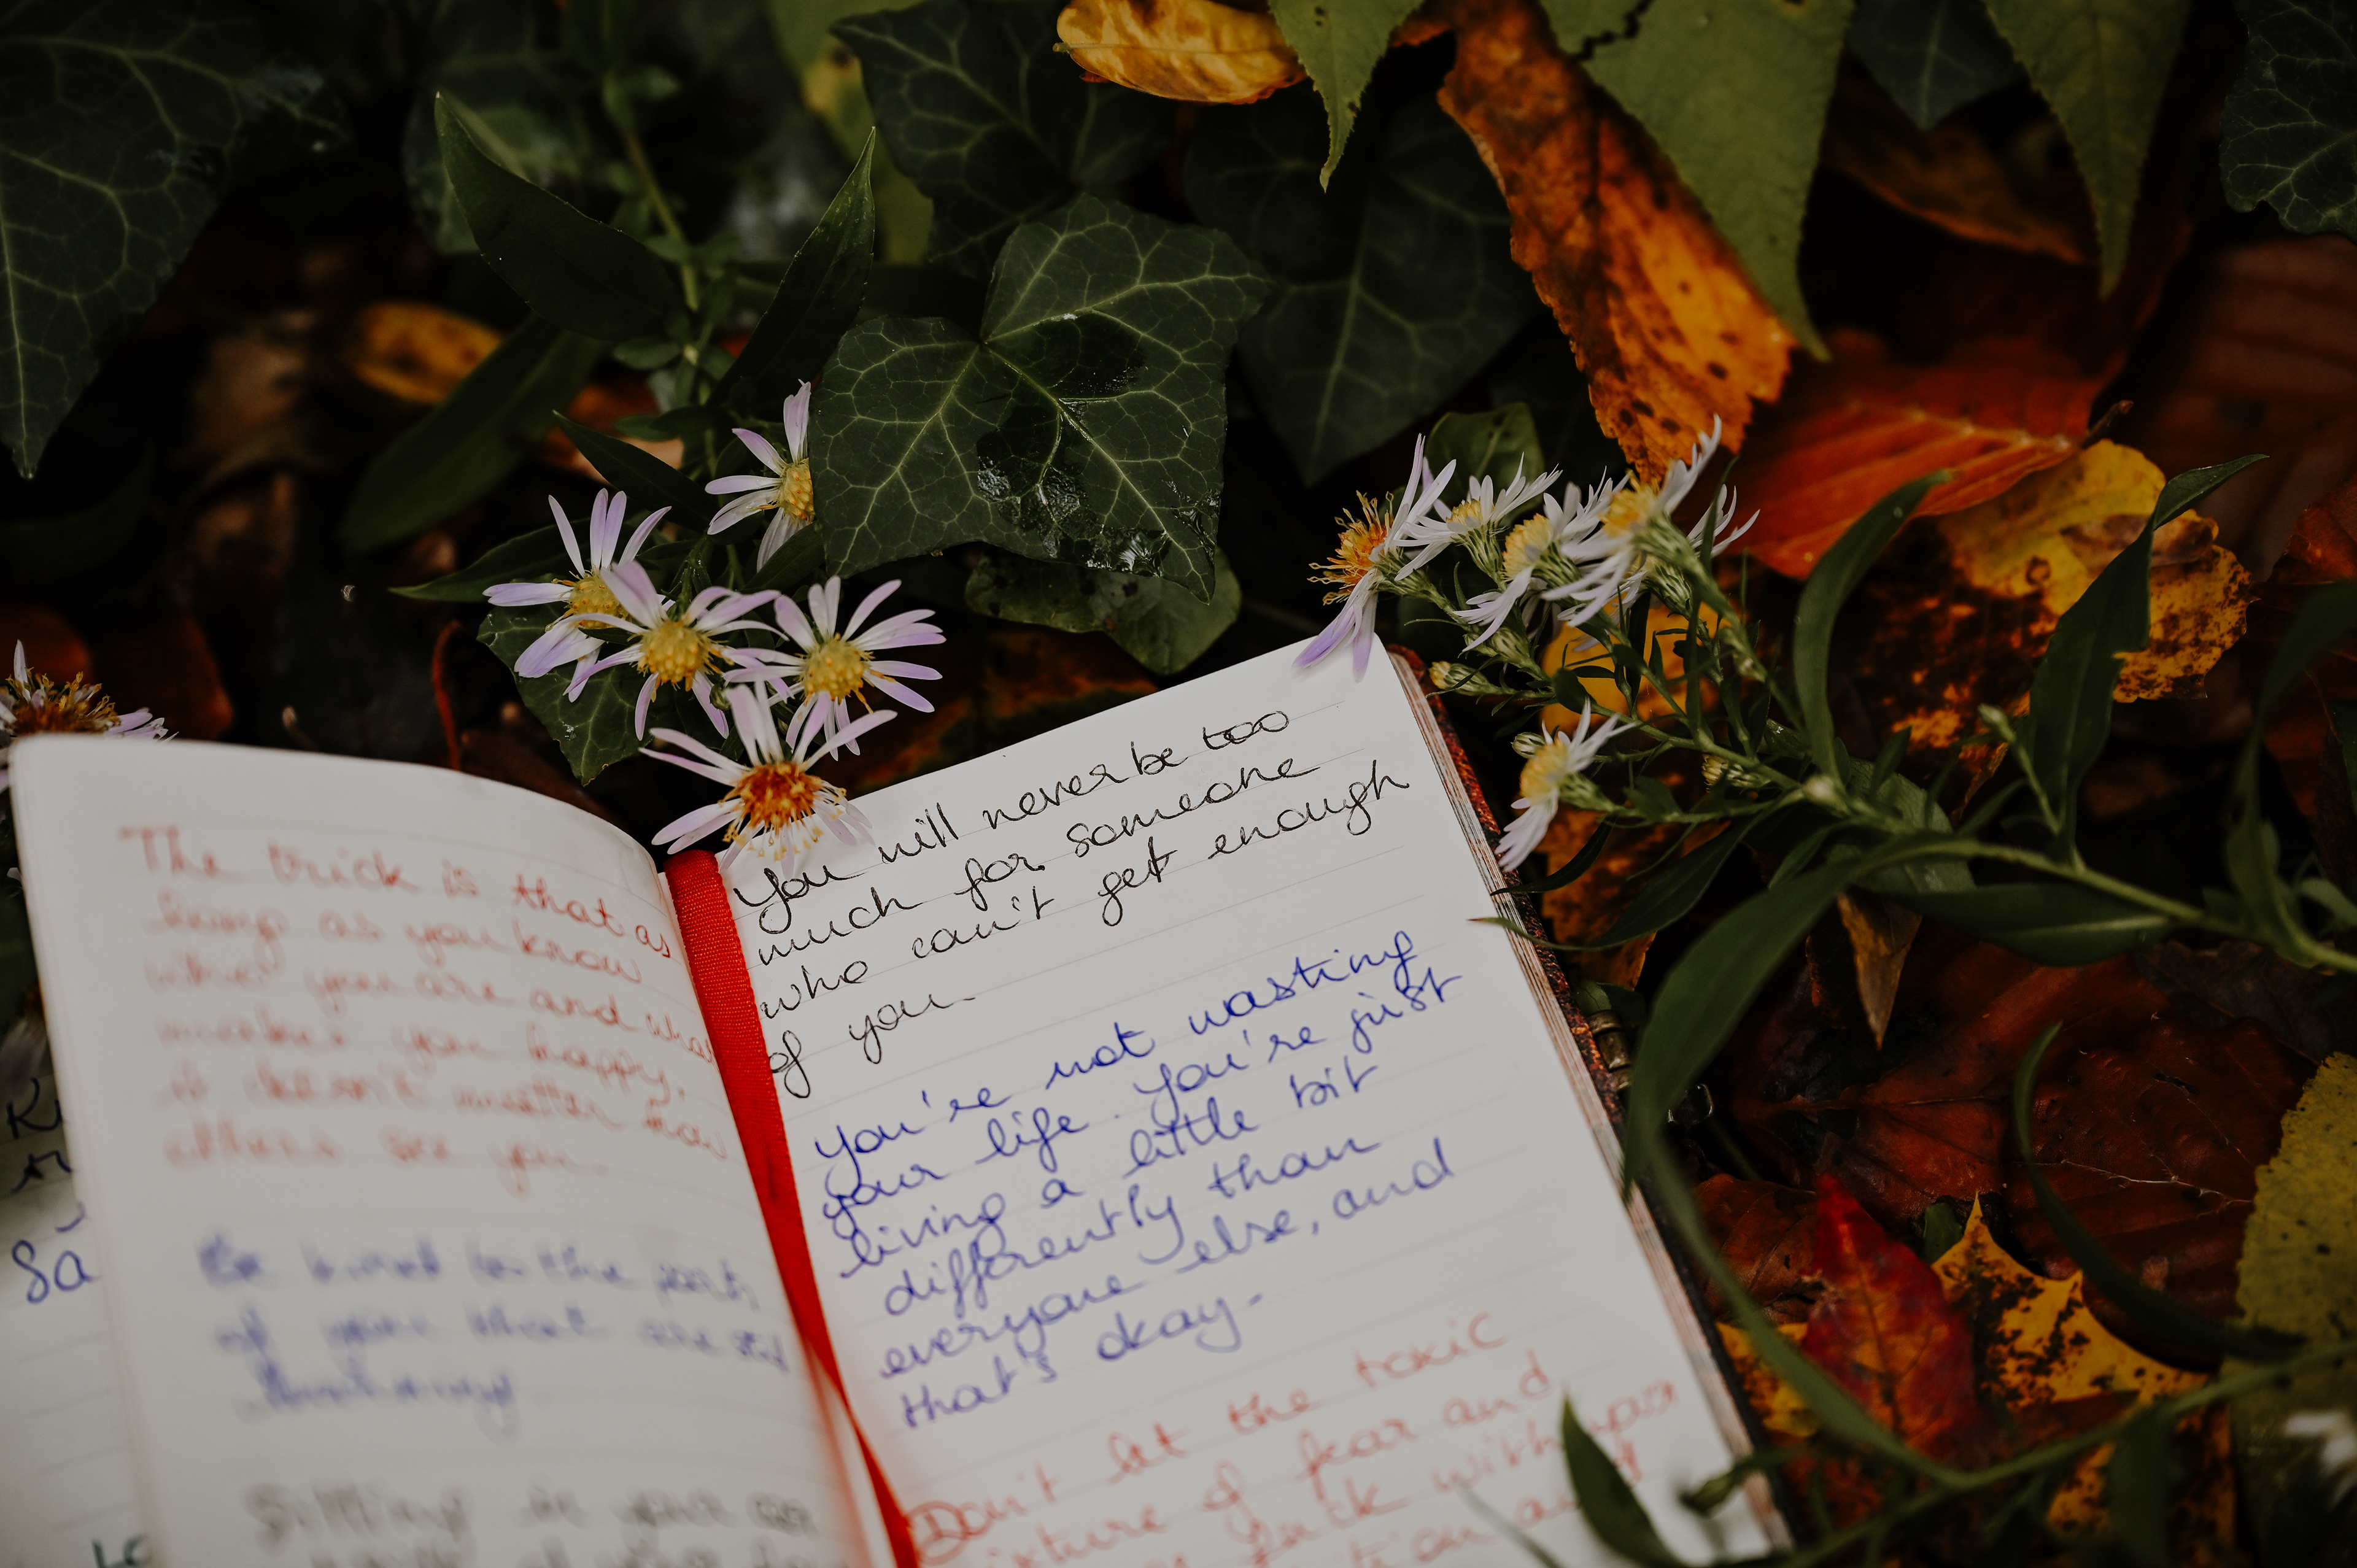 The trick is that as
long as you know
who you are and what
makes you happy,
it doesn't matter how
others see you.
Be kind to the parts
of you that are still
Sitting in your
You will never be too
much for someone
who can't get enough
of you.
You're not wasting
your life. You're just
living a little bit
differently than
everyone else, and
that's okay.
Don't let the toxic
mixture of fear and
fuck with your